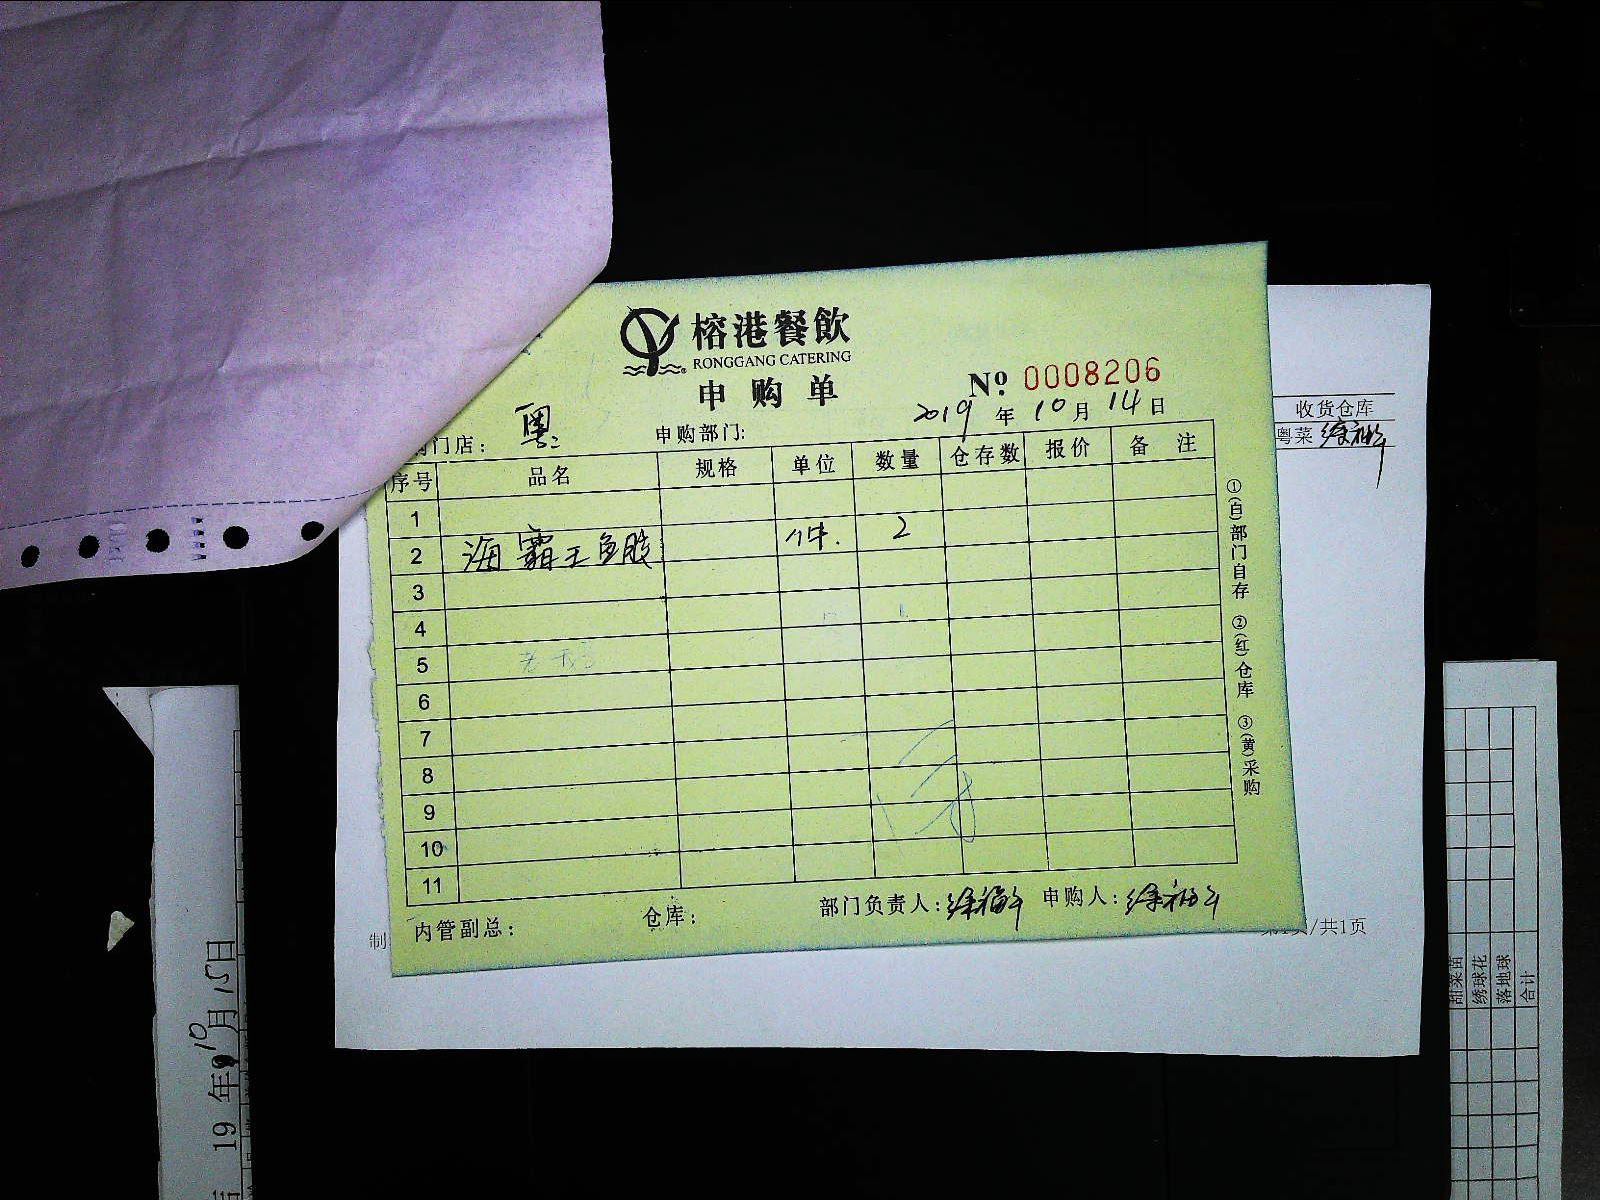 榕港餐飲
RONGGANG CATERING
申购单
Nº 0008206
2019年10月14日
门店： 粤
申购部门:
序号 品名 规格 单位 数量 仓存数 报价 备注
1
2 海霸王鱼胶 件. 2
3
4
5
6
7
8
9
10
11
内管副总：
仓库：
部门负责人：徐福
申购人：徐福
①(白)部门自存 ②(红)仓库 ③(黄)采购
收货仓库
粤菜
制
/共1页
19年10月15日
甜菜苗
绣球花
落地球
合计